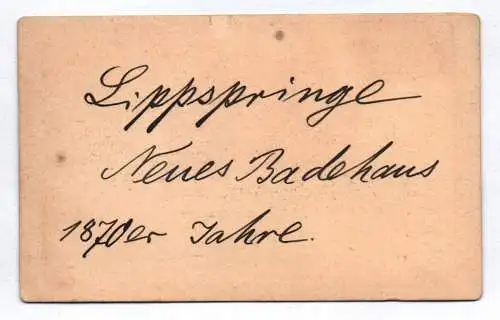 Lippspringe
Neues Badehaus
1870er Jahre.